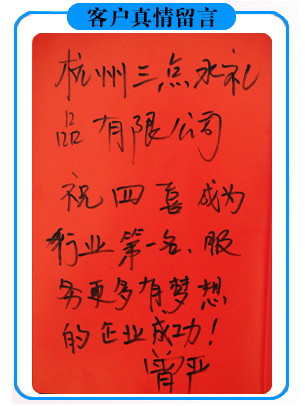 客户真情留言
杭州三点水礼
品有限公司
祝四喜成为
行业第一名、服
务更多有梦想
的企业成功！
曾严